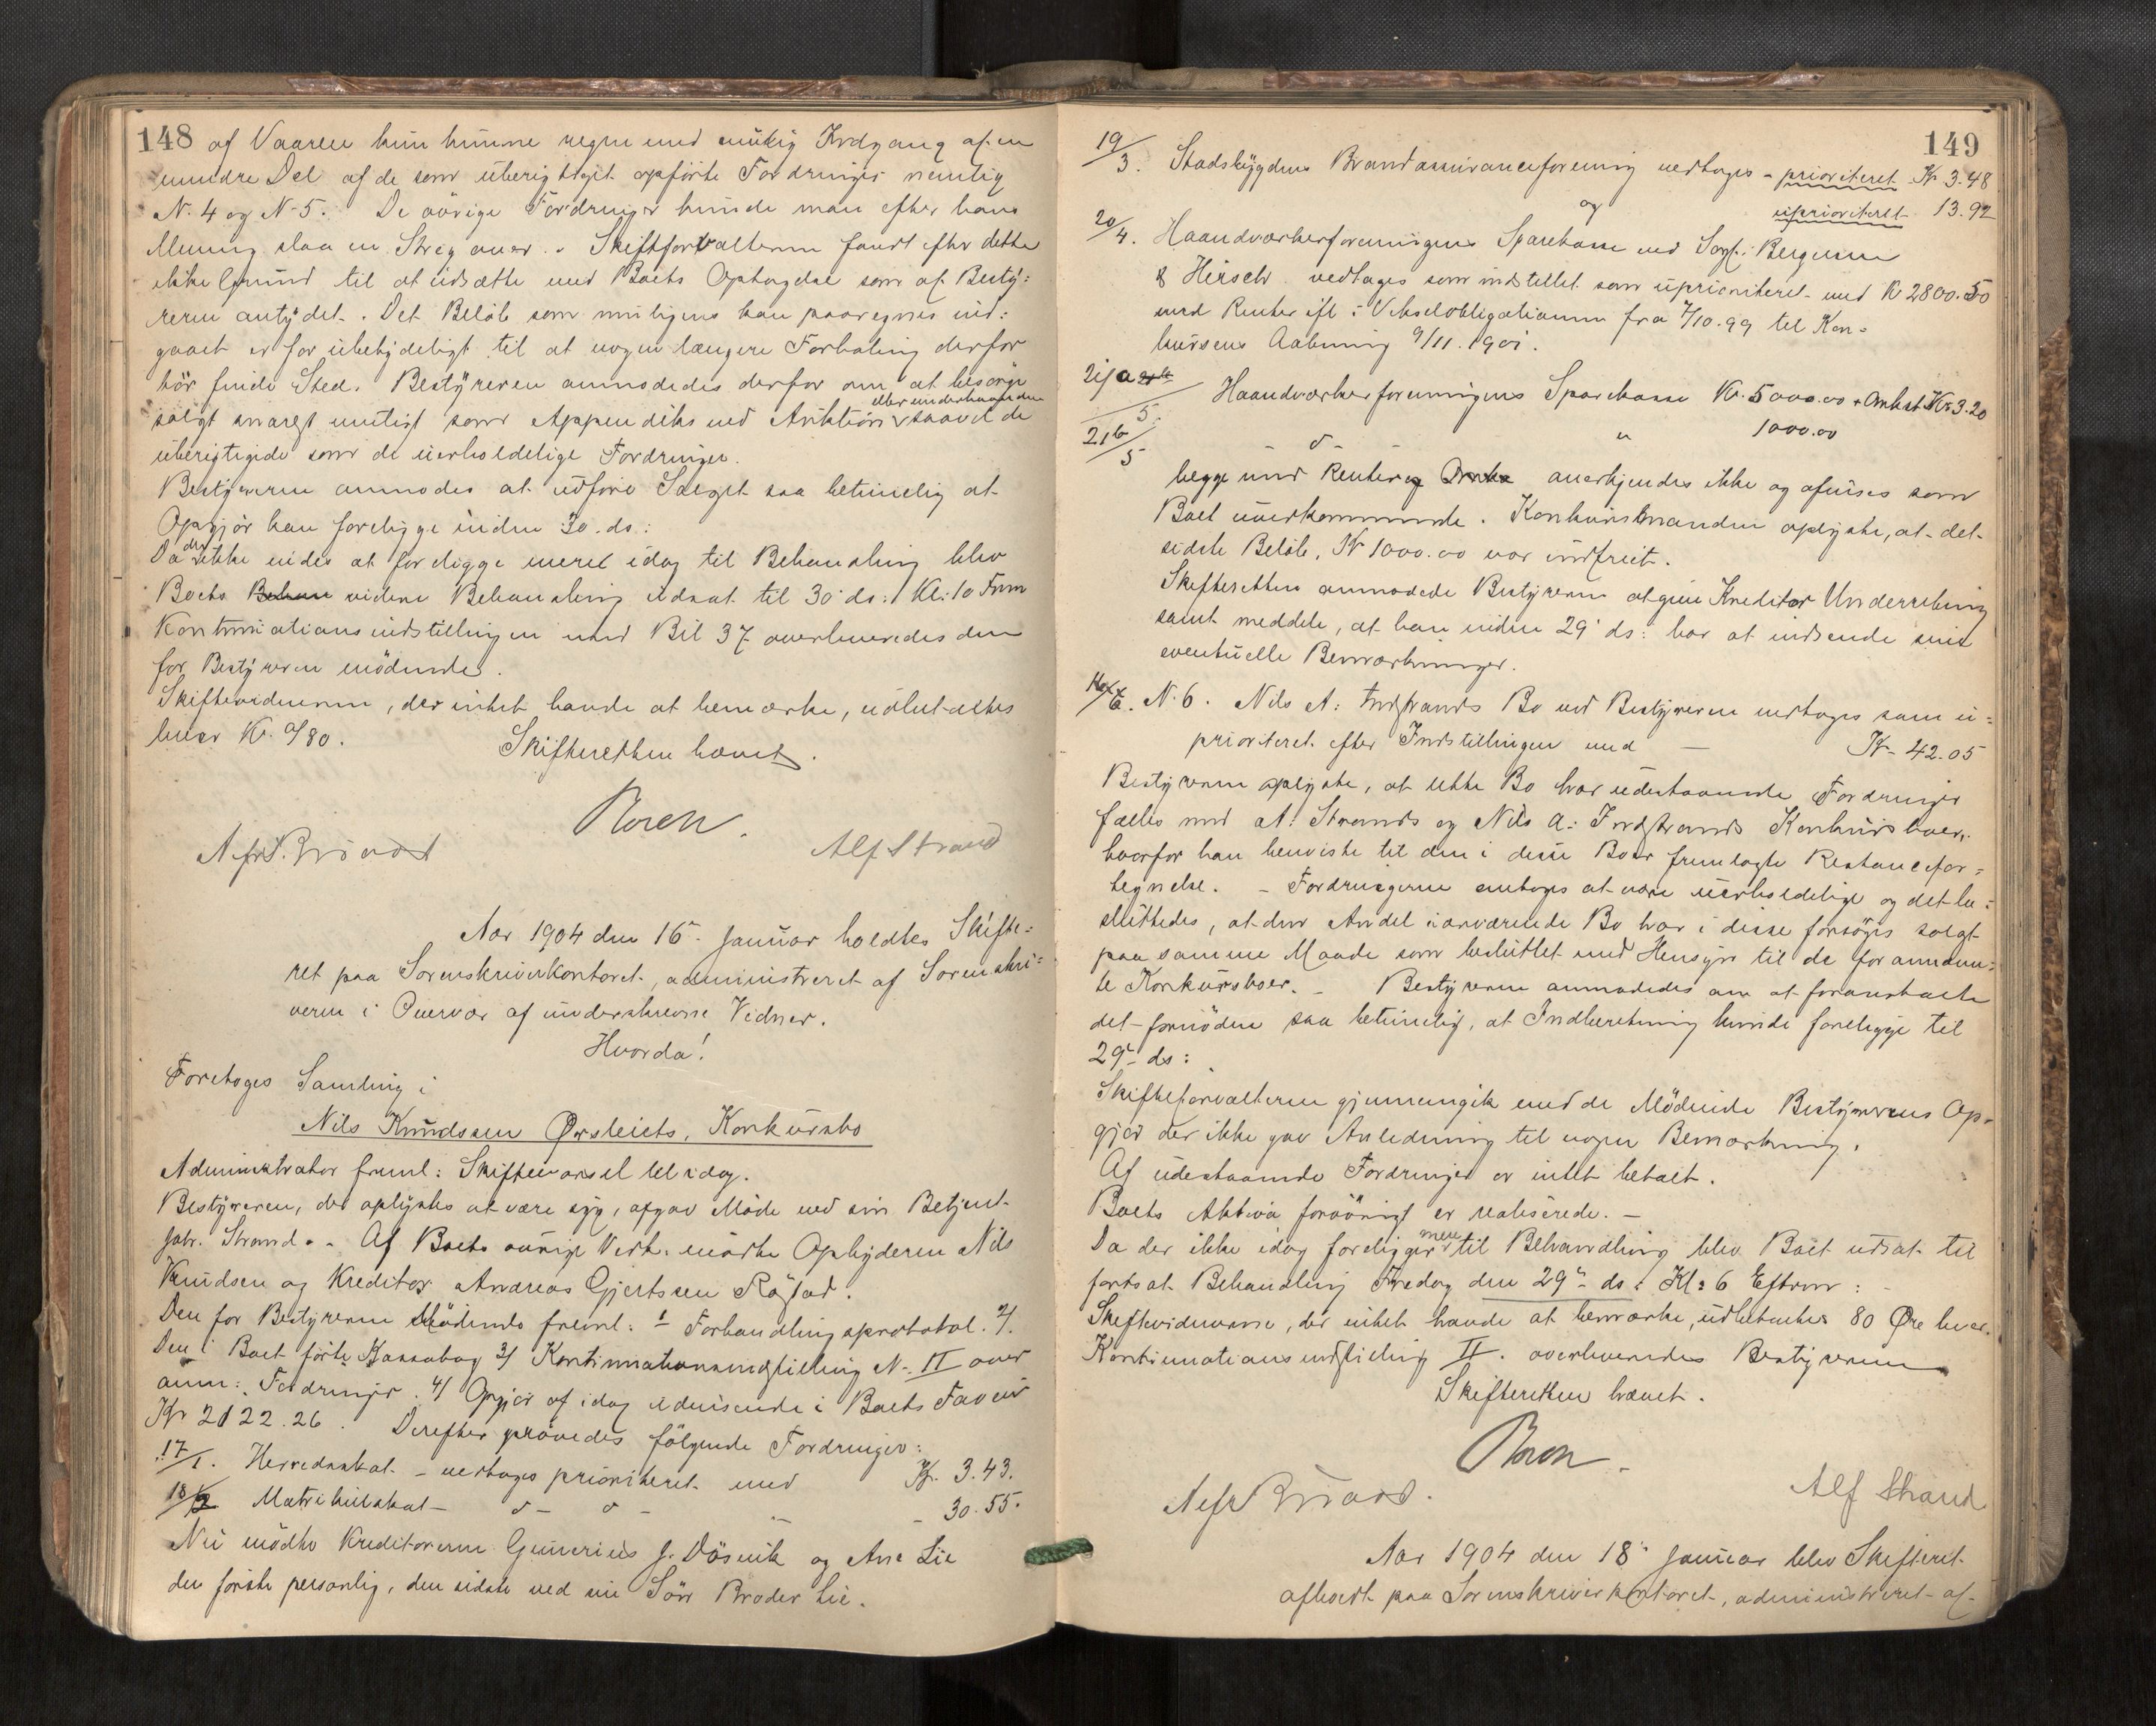 148
af Vaaren kun kunne regne med mulig Indgang af en
mindre Del af de som uberigtiget opførte Fordringer nemlig
N. 4 og N. 5. De øvrige Fordringer kunde man efter hans
Mening slaa en Streg over. Skifteforvalteren fandt efter dette
ikke Grund til at udsætte med Boets Optagelse som af Besty:
reren antydet. Det Beløb som muligens kan paaregnes ind:
gaaet er for ubetydeligt til at nogen længere Forhaling derfor
bør finde Sted. Bestyreren anmodedes derfor om at besørge
solgt snarest muligt som Appendiks ved Auktion eller underhaanden saavel de
uberigtigede som de uerholdelige Fordringer.
Bestyreren anmodes at udføre Salget saa betimelig at
Opgjør kan foreligge inden 30. ds.:
Da der ikke vides at foreligge mere idag til Behandling blev
Boets Behan videre Behandling udsat til 30' ds: Kl: 10 Fmm
Kontinuationsindstillingen med Bil 37 overleveredes den
for Bestyreren mødende.
Skiftevidnerne, der intet havde at bemærke, udbetaltes
hver Kr. 0/80.
Skifteretten hævet.
Roren.
Alf Strand
Aar 1904 den 16de Januar holdtes Skifte:
ret paa Sorenskriverkontoret, administreret af Sorenskri:
veren i Overvær af underskrevne Vidner.
Hvorda!
Foretoges Samling i
Nils Knudssen Ørsleiets, Konkursbo
Administrator freml: Skiftevarsel til idag.
Bestyreren, der oplystes at være syg, afgav Møde ved sin Betjent
Strand. - Af Boets øvrige Vedk. mødte Opbyderen Nils
Knudsen og Kreditor Andreas Gjertssen Røstad.
Den for Bestyreren Mødende freml: 1 Forhandlingsprotokol. 2/
Den i Boet førte Kassabog 3/ Kontinuationsindstilling N: II over
anm: Fordringer. 4/ Opgjør af idag udvisende i Boets Favør
Kr 2122.26. Derefter prøvedes følgende Fordringer:
17/1. Herredsskat - vedtages prioriteret med Kr. 3.43.
18/2 Matrikulskat - d - d - - 30.55.
Nu mødte Kreditorerne Gunerius J. Døsvik og Ane Lie
den første personlig, den sidste ved sin Søn Broder Lie.
149
19/3. Stadsbygdens Brandassuranceforening vedtages - prioriteret Kr 3.48
og uprioriteret 13.92
20/4. Haandværkerforeningens Sparekasse ved Sagf: Bergersen
& Hirsch vedtages som indstillet som uprioriteret med Kr 2800.50
med Renter ifl: Vekselobligationen fra 7/10.99 til Kon=
kursens Aabning 9/11.1901.
21/a 5. Haandværkerforeningens Sparekasse Kr. 5000.00 + Omkst. Kr 3.20
21b/5 - d - " 1000.00
begge med Renter og Omk anerkjendes ikke og afvises som
Boet uvedkommende. Konkursmanden oplyste, at det
sidste Beløb, Kr 1000.00 var indfriet.
Skifteretten anmodede Bestyreren at give Kreditor Underretning
samt meddele, at han inden 29' ds: har at indsende sine
eventuelle Bemærkninger.
N. 6. Nils A: Indstrands Bo ved Bestyreren vedtages som u=
prioriteret efter Indstillingen med - Kr - 42.05
Bestyreren oplyste, at dette Bo har udestaaende Fordringer
fælles med A: Strands og Nils A: Indstrands Konkursboer,
hvorfor han henviste til den i disse Boer fremlagte Restancefor=
tegnelse. - Fordringerne antoges at være uerholdelige og det be:
sluttedes, at den Andel nærværende Bo har i disse forsøges solgt
paa samme Maade som besluttet med Hensyn til de forannævn:
te Konkursboer. - Bestyreren anmodedes om at foranstalte
det fornødne saa betimelig, at Indberetning kunde foreligge til
29de ds:
Skifteforvalteren gjennemgik med de Mødende Bestyrerens Op=
gjør der ikke gav Anledning til nogen Bemærkning.
Af udestaaende Fordringer er intet betalt.
Boets Aktiva forøvrigt er realiserede. -
Da der ikke idag foreligger mere til Behandling blev Boet udsat til
fortsat Behandling Fredag den 29de ds: Kl: 6 Eftrm:
Skiftevidnerne, der intet havde at bemærke, udbetaltes 80 Øre hver.
Kontinuationsindstilling II. overleveredes Bestyreren
Skifteretten hævet.
Roren
Alf Strand
Aar 1904 den 18de Januar blev Skifteret
afholdt paa Sorenskriverkontoret, administreret af